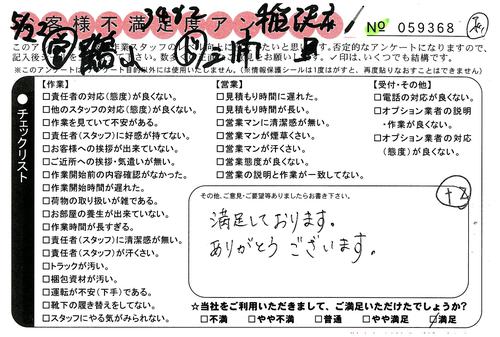 5/22
お客様不満足度アン
No 059368
このア
記入後
※このアンケートは、アンケート目的以外には使用いたしません。(※情報保護シールは1度はがすと、再度貼りなおすことはできません
チェックリスト
【作業】
□責任者の対応(態度)が良くない。
□他のスタッフの対応(態度)が良くない。
□作業を見ていて不安がある。
□責任者(スタッフ)に好感が持てない。
□お客様への挨拶が出来ていない。
□ご近所への挨拶・気遣いが無い。
□作業開始前の内容確認がなかった。
□作業開始時間が遅れた。
□荷物の取り扱いが雑である。
□お部屋の養生が出来ていない。
□作業時間が長すぎる。
□責任者(スタッフ)に清潔感が無い。
□責任者(スタッフ)が汗くさい。
□トラックが汚い。
□梱包資材が汚い。
□運転が不安(下手)である。
□靴下の履き替えをしてない。
□スタッフにやる気がみられない。
【営業】
□見積もり時間に遅れた。
□見積もり時間が長い。
□営業マンに清潔感が無い。
□営業マンが煙草くさい。
□営業マンが汗くさい。
□営業態度が良くない。
□営業の説明と作業が一致してない。
【受付・その他】
□電話の対応が良くない。
□オプション業者の説明
・作業が良くない。
□オプション業者の対応
(態度)が良くない。
その他、ご意見・ご要望等ありましたらお書き下さい。
+2
満足しております。
ありがとうございます。
☆当社をご利用いただきまして、ご満足いただけたでしょうか?
□不満 □やや不満 □普通 □やや満足 ☑満足